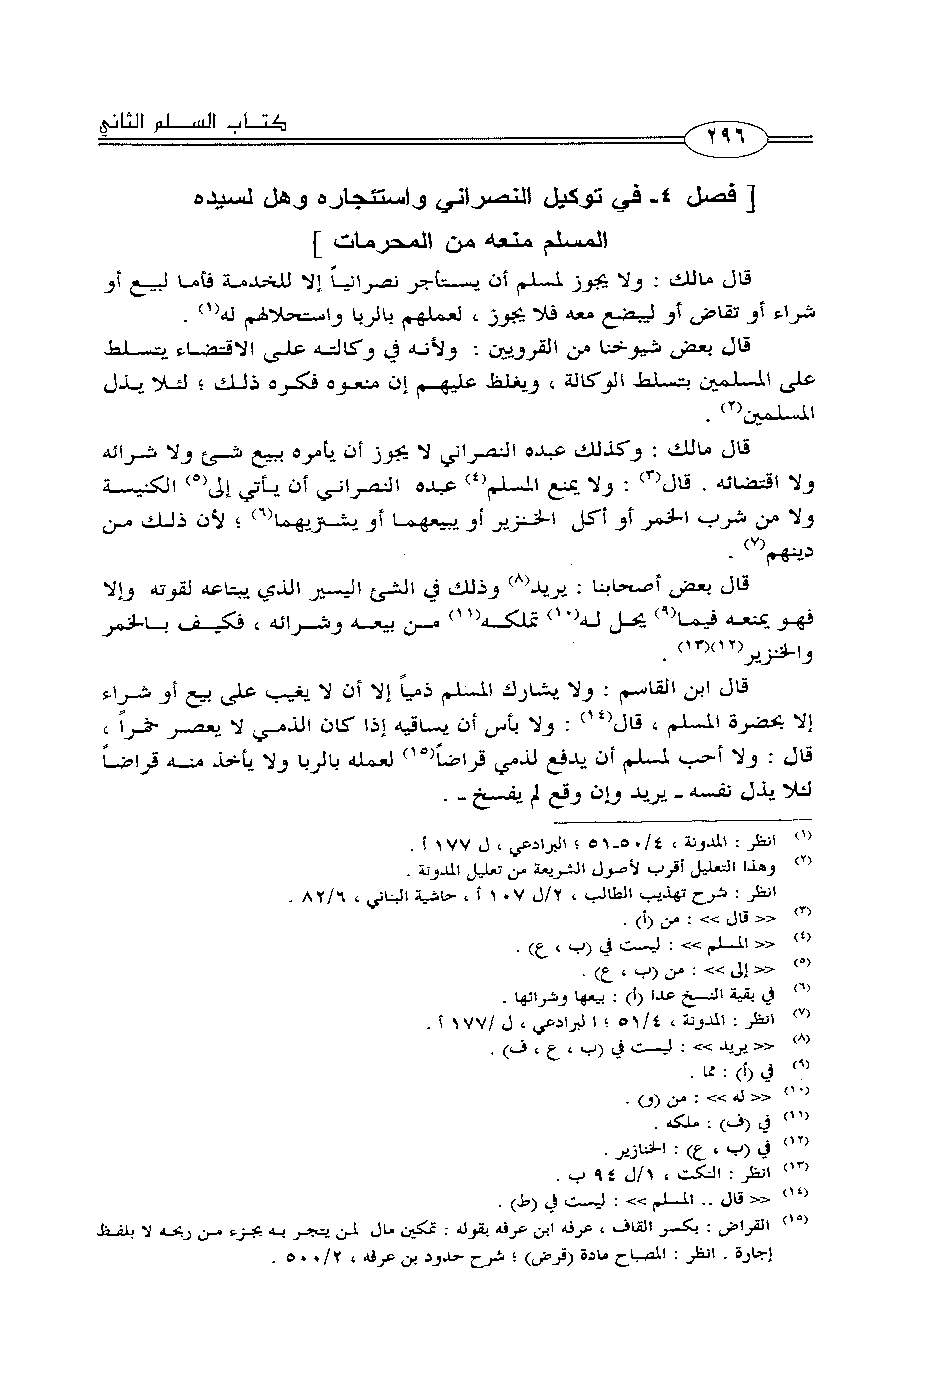 كتـاب السـلم الثاني
٢٩٦
[ فصل ٤ـ في توكيل النصراني واستئجاره وهل لسيده
المسلم منعه من المحرمات ]
قال مالك : ولا يجوز لمسلم أن يستأجر نصرانياً إلا للخدمة فأما لبيع أو
شراء أو تقاض أو ليبضع معه فلا يجوز ، لعملهم بالربا واستحلالهم له(١) .
قال بعض شيوخنا من القرويين : ولأنه في وكالته على الاقتضاء يتسلط
على المسلمين بتسلط الوكالة ، ويغلظ عليهم إن منعوه فكره ذلك ؛ لئلا يذل
المسلمين(٢) .
قال مالك : وكذلك عبده النصراني لا يجوز أن يأمره ببيع شئ ولا شرائه
ولا اقتضائه . قال(٣) : ولا يمنع المسلم(٤) عبده النصراني أن يأتي إلى(٥) الكنيسة
ولا من شرب الخمر أو أكل الخنزير أو يبيعهما أو يشتريهما(٦) ؛ لأن ذلك من
دينهم(٧) .
قال بعض أصحابنا : يريد(٨) وذلك في الشئ اليسير الذي يبتاعه لقوته وإلا
فهو يمنعه فيما(٩) يحل له(١٠) تملكه(١١) من بيعه وشرائه ، فكيف بالخمر
والخنزير(١٢)(١٣) .
قال ابن القاسم : ولا يشارك المسلم ذمياً إلا أن لا يغيب على بيع أو شراء
إلا بحضرة المسلم ، قال(١٤) : ولا بأس أن يساقيه إذا كان الذمي لا يعصر خمراً ،
قال : ولا أحب لمسلم أن يدفع لذمي قراضاً(١٥) لعمله بالربا ولا يأخذ منه قراضاً
لئلا يذل نفسه ـ يريد وإن وقع لم يفسخ ـ .
(١) انظر : المدونة ، ٤/ ٥٠ـ٥١ ؛ البرادعي ، ل ١٧٧ أ .
(٢) وهذا التعليل أقرب لأصول الشريعة من تعليل المدونة .
انظر : شرح تهذيب الطالب ، ٢/ل ١٠٧ أ ، حاشية البناني ، ٦/ ٨٢ .
(٣) << قال >> : من (أ) .
(٤) << المسلم >> : ليست في (ب ، ع) .
(٥) << إلى >> : من (ب ، ع) .
(٦) في بقية النسخ عدا (أ) : بيعها وشرائها .
(٧) انظر : المدونة ، ٤/ ٥١ ؛ البرادعي ، ل /١٧٧ أ .
(٨) << يريد >> : ليست في (ب ، ع ، ف) .
(٩) في (أ) : مما .
(١٠) << له >> : من (و) .
(١١) في (ف) : ملكه .
(١٢) في (ب ، ع) : الخنازير .
(١٣) انظر : النكت ، ١/ل ٩٤ ب .
(١٤) << قال .. المسلم >> : ليست في (ط) .
(١٥) القراض : بكسر القاف ، عرفه ابن عرفه بقوله : تمكين مال لمن يتجر به بجزء من ربحه لا بلفظ
إجارة . انظر : المصباح مادة (قرض) ؛ شرح حدود بن عرفه ، ٢/ ٥٠٠ .